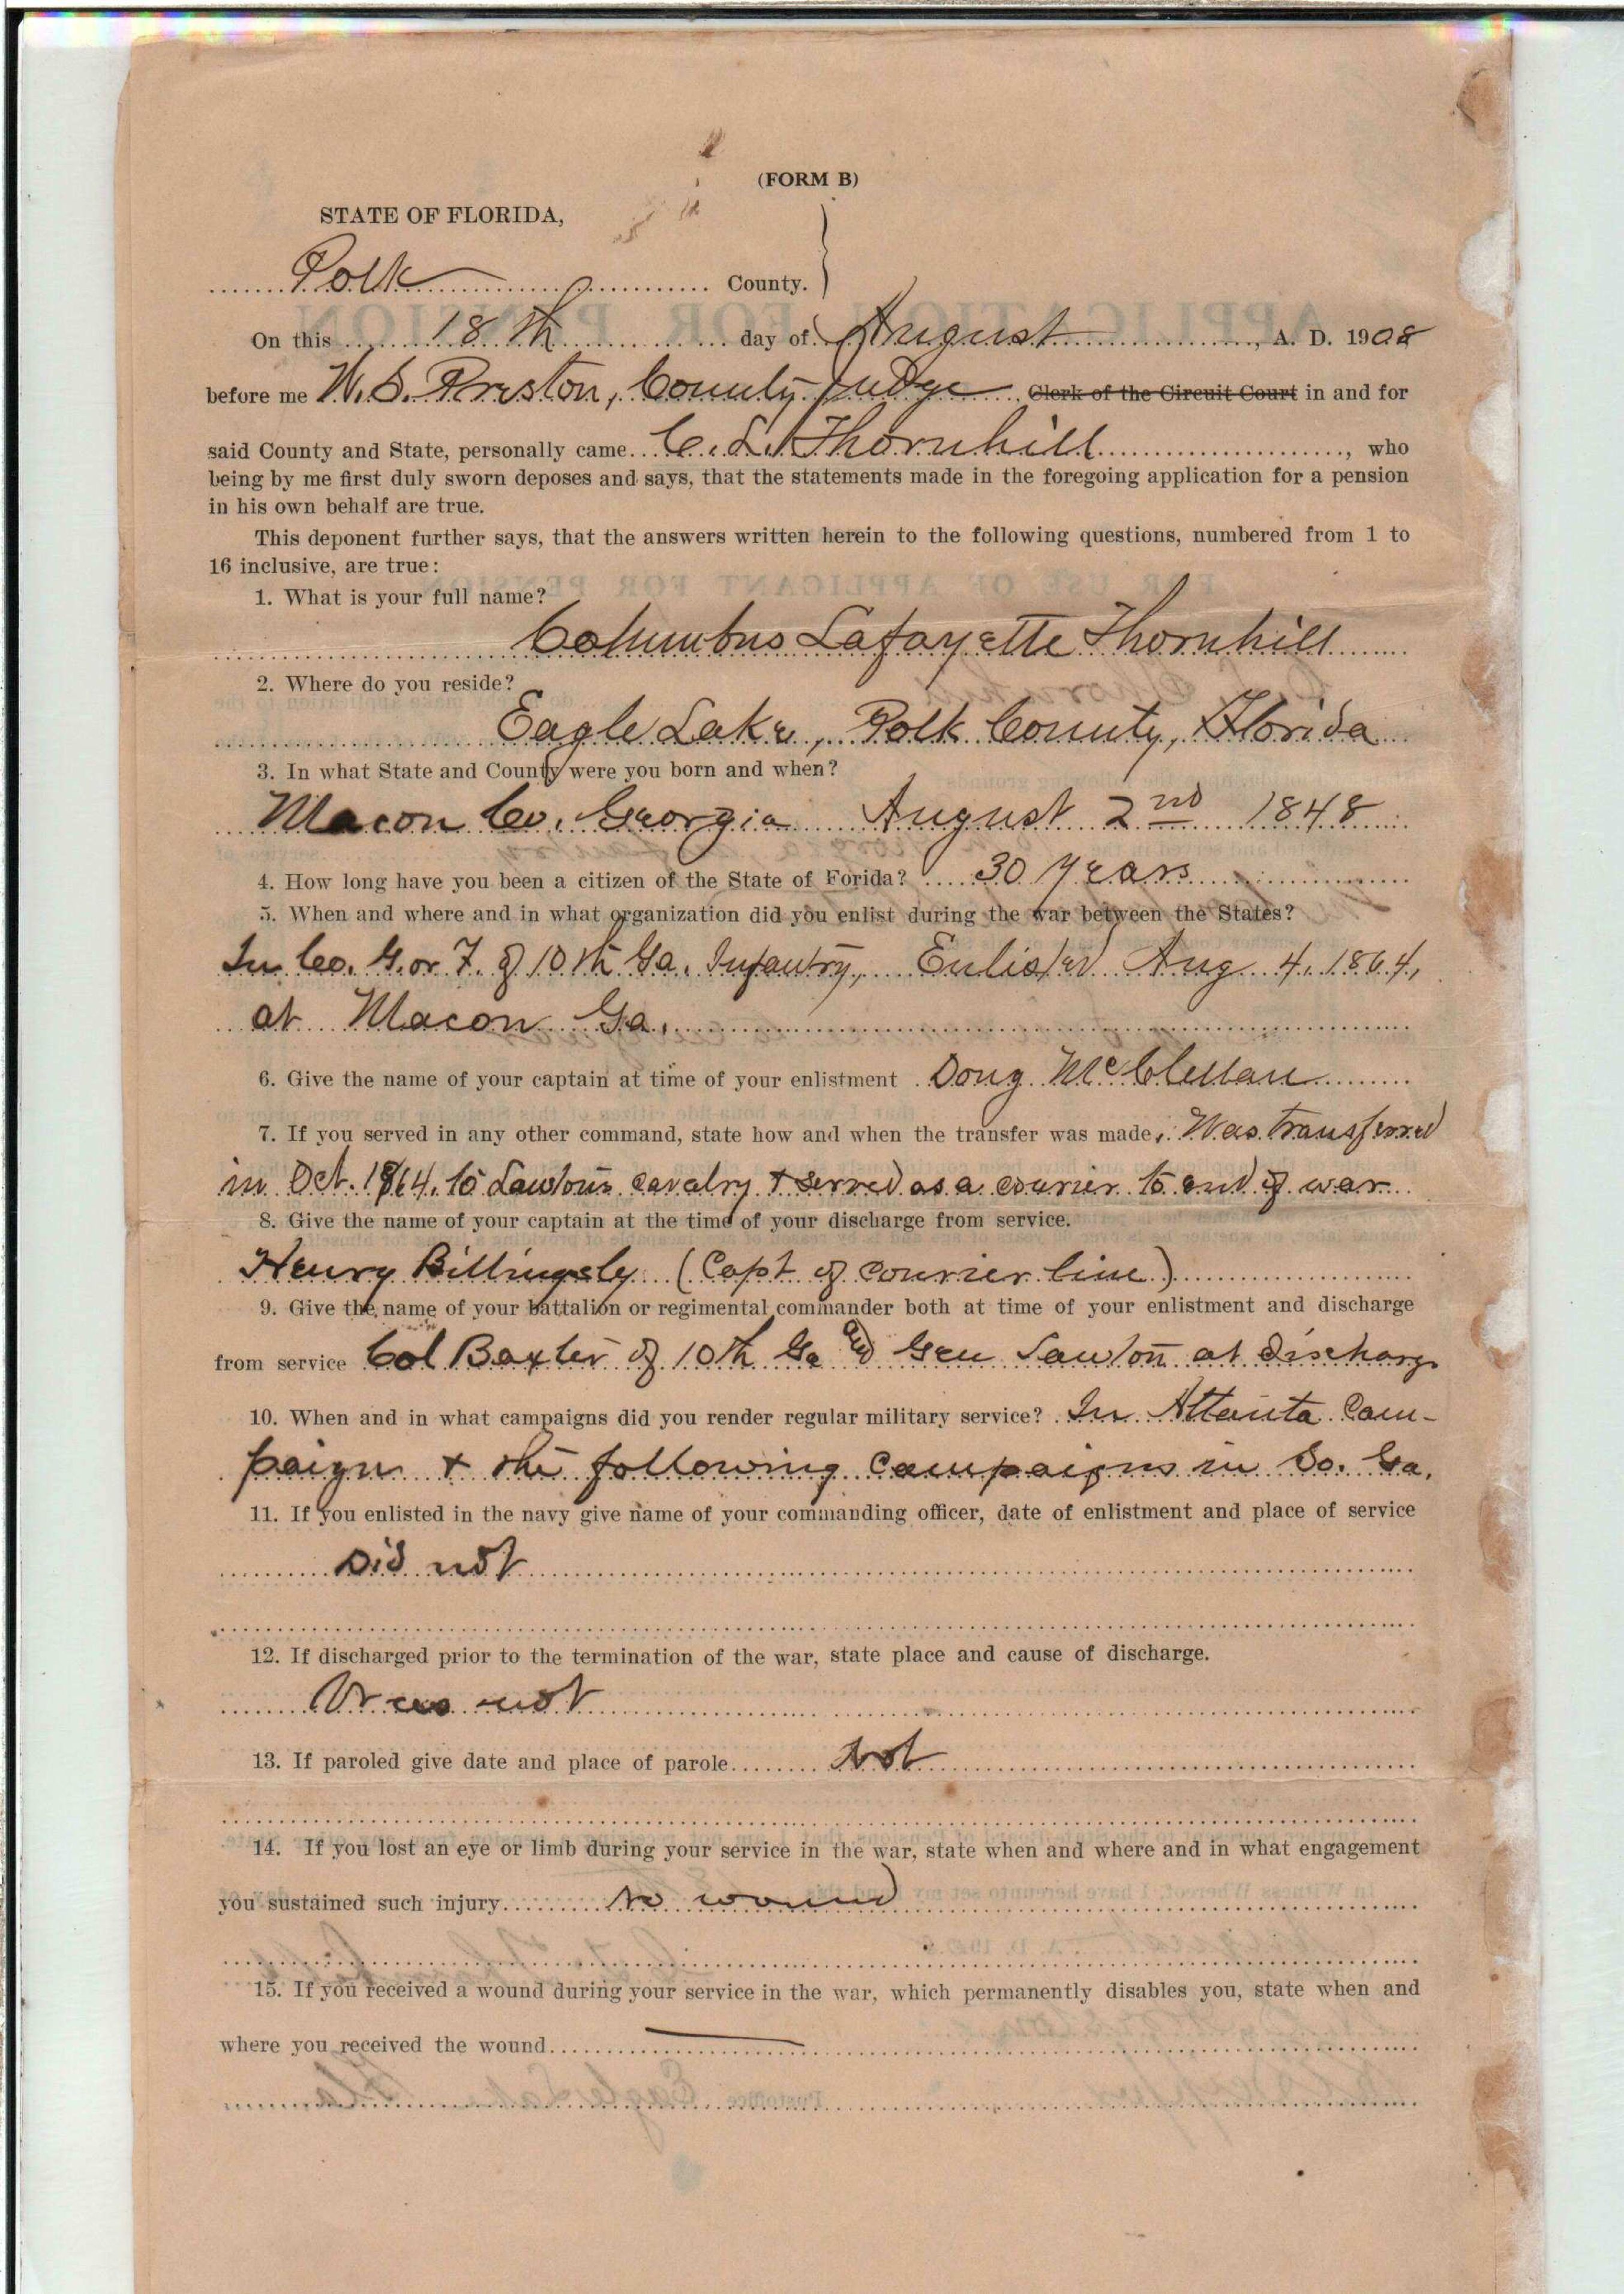 (FORM B)
STATE OF FLORIDA,
Polk County.
On this 18th day of August, A. D. 1908
before me W. S. Preston, County Judge Clerk of the Circuit Court in and for
said County and State, personally came C. L. Thornhill, who
being by me first duly sworn deposes and says, that the statements made in the foregoing application for a pension
in his own behalf are true.
This deponent further says, that the answers written herein to the following questions, numbered from 1 to
16 inclusive, are true:
1. What is your full name?
Columbus Lafayette Thornhill
2. Where do you reside?
Eagle Lake, Polk County, Florida
3. In what State and County were you born and when?
Macon Co. Georgia August 2nd 1848
4. How long have you been a citizen of the State of Forida? 30 years
5. When and where and in what organization did you enlist during the war between the States?
In Co. G. or F. of 10th Ga. Infantry, Enlisted Aug 4, 1864,
at Macon Ga.
6. Give the name of your captain at time of your enlistment Doug McClellan
7. If you served in any other command, state how and when the transfer was made, Was transferred
in Oct. 1864, to Lawtons cavalry & served as a courier to end of war
8. Give the name of your captain at the time of your discharge from service.
Henry Billingsly (Capt of courier line)
9. Give the name of your battalion or regimental commander both at time of your enlistment and discharge
from service Col Baxter of 10th Ga and Gen Lawton at discharge
10. When and in what campaigns did you render regular military service? In Atlanta Cam-
paign & the following campaigns in So. Ga.
11. If you enlisted in the navy give name of your commanding officer, date of enlistment and place of service
Did not
12. If discharged prior to the termination of the war, state place and cause of discharge.
Was not
13. If paroled give date and place of parole Not
14. If you lost an eye or limb during your service in the war, state when and where and in what engagement
you sustained such injury No wound
15. If you received a wound during your service in the war, which permanently disables you, state when and
where you received the wound